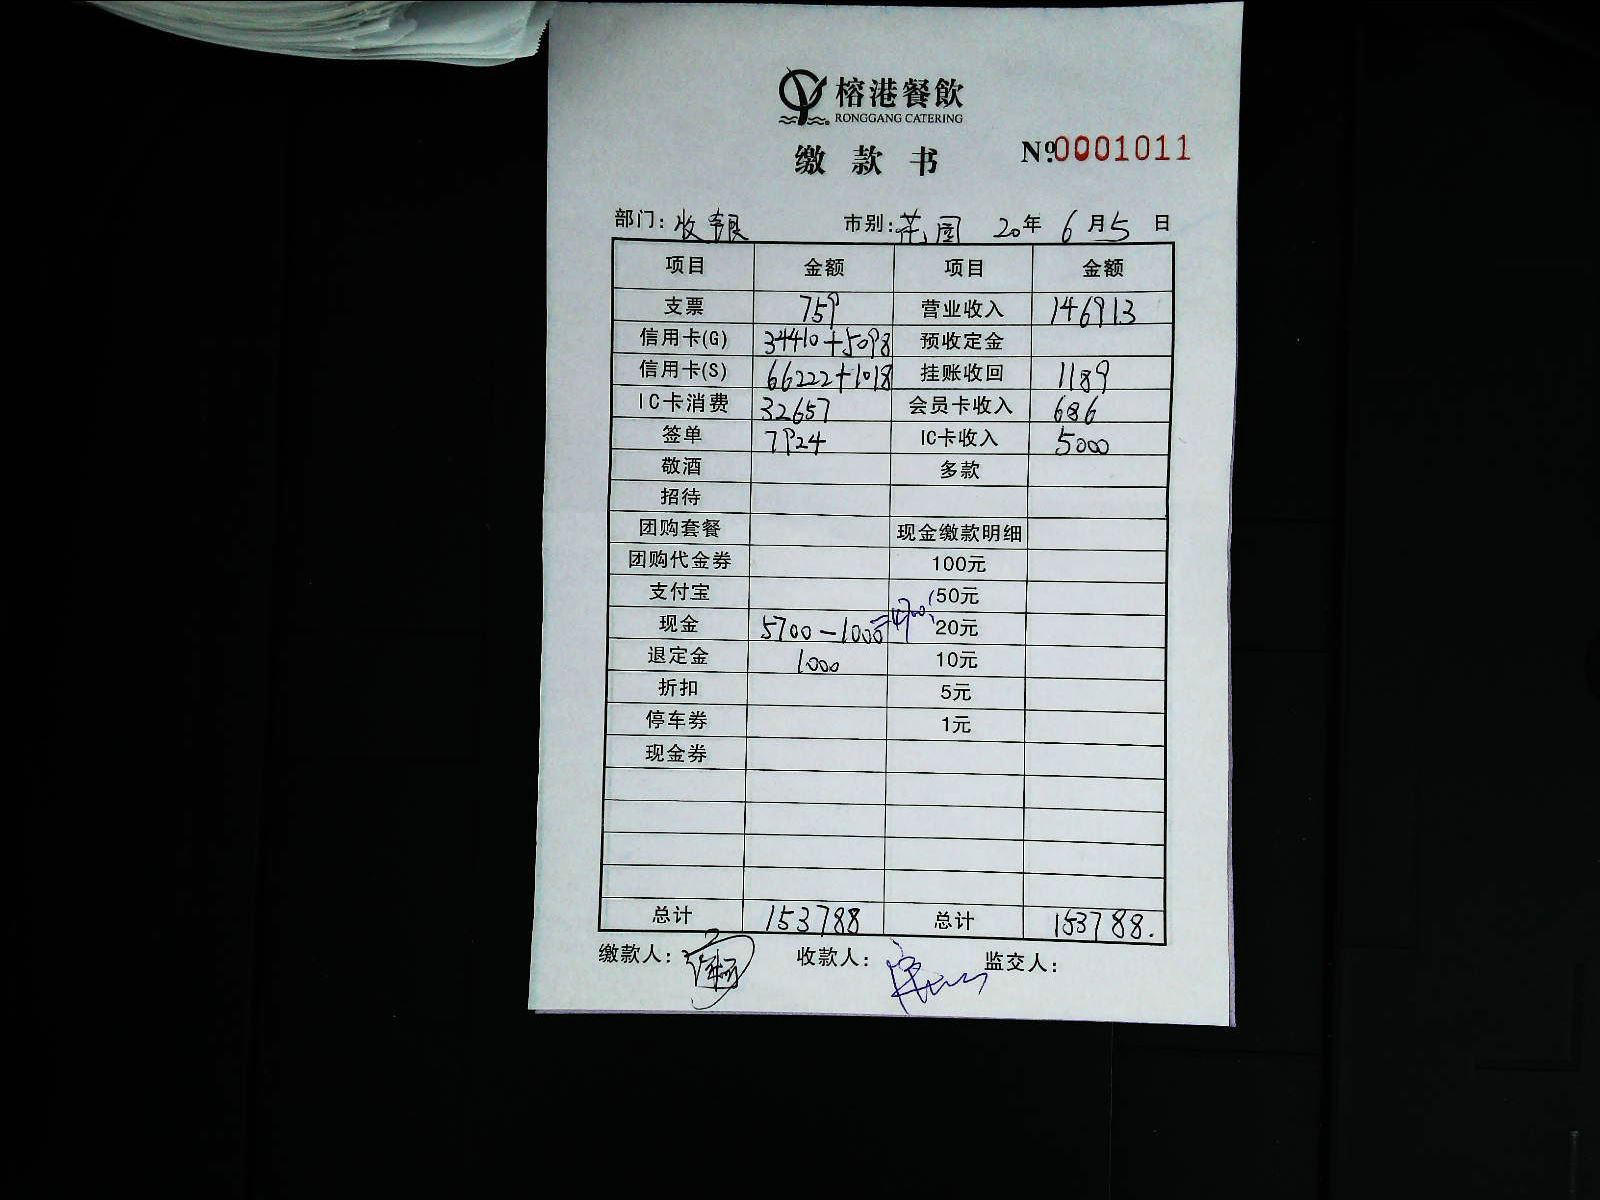 榕港餐飲
RONGGANG CATERING
缴款书 №0001011
部门:收银 市别:花园 20年6月5日
项目 金额 项目 金额
支票 759 营业收入 146913
信用卡(G) 34410+5098 预收定金
信用卡(S) 66222+1018 挂账收回 1189
IC卡消费 32657 会员卡收入 686
签单 7924 IC卡收入 5000
敬酒 多款
招待
团购套餐 现金缴款明细
团购代金券 100元
支付宝 50元
现金 5700-1000=4700 20元
退定金 1000 10元
折扣 5元
停车券 1元
现金券
总计 153788 总计 153788.
缴款人: 收款人: 监交人: